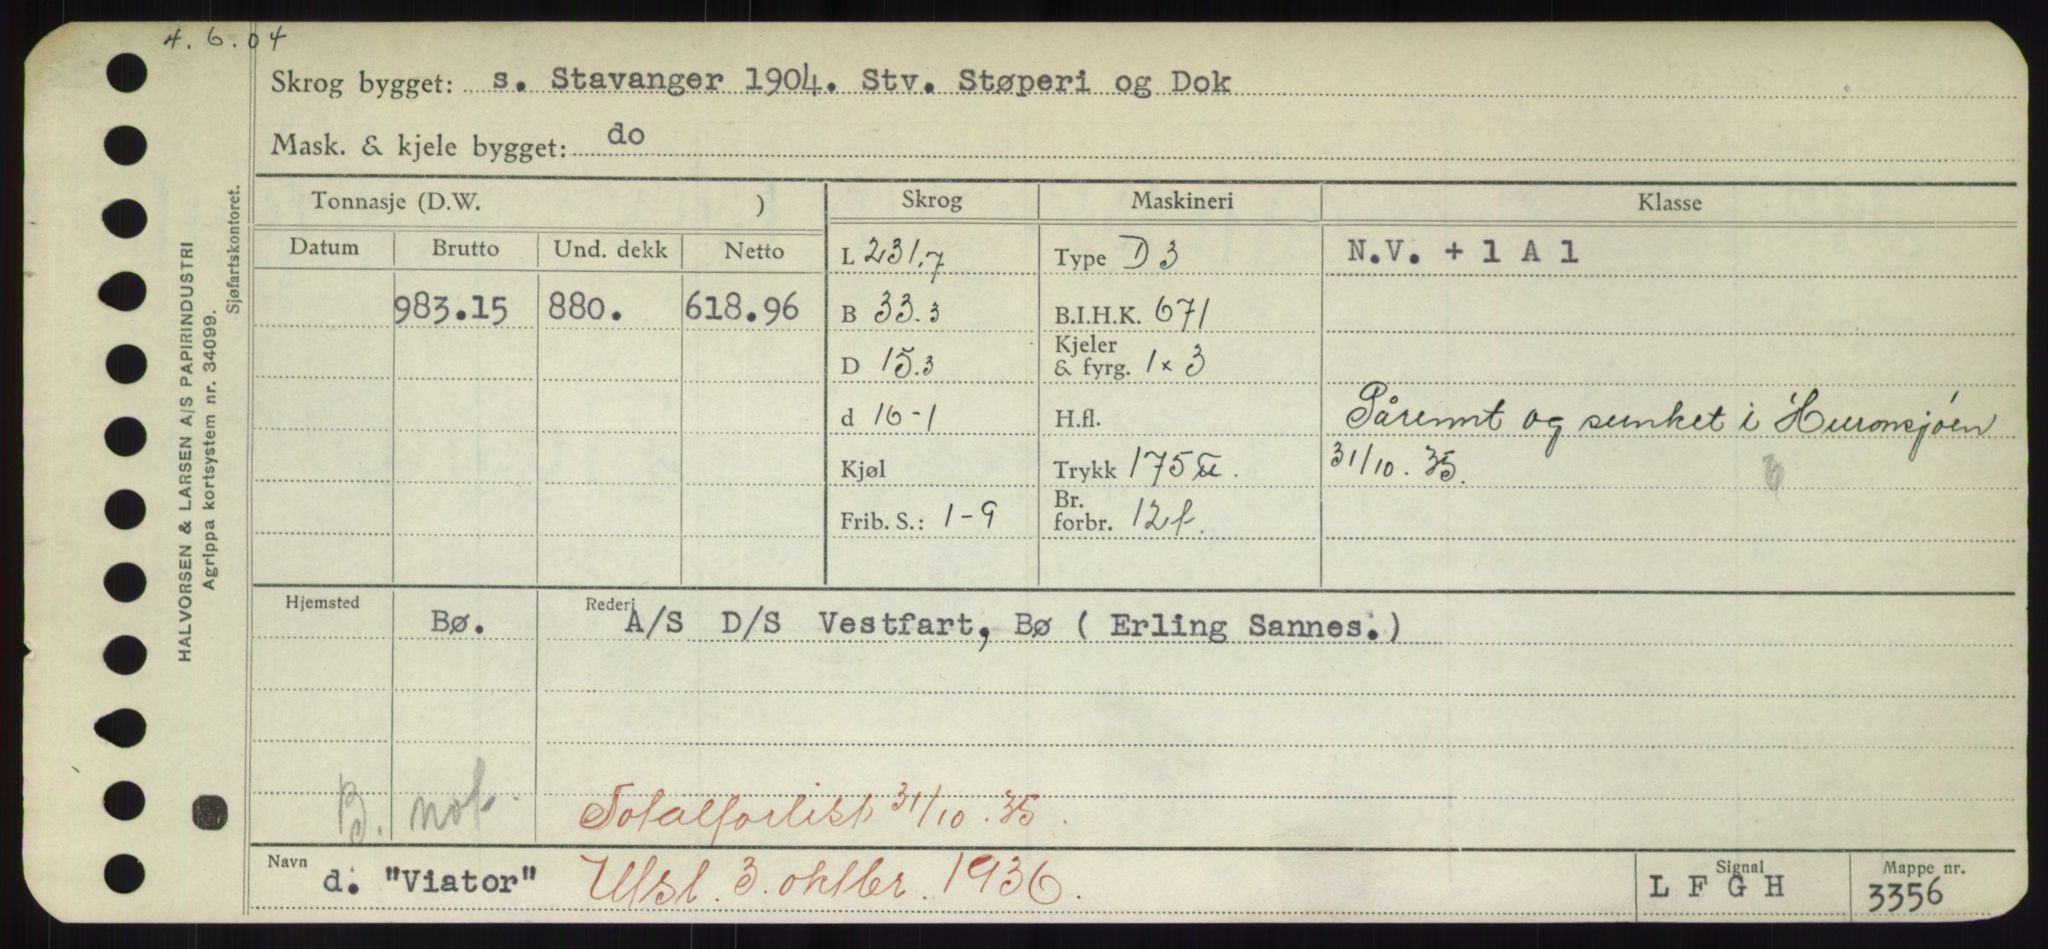 4.6.04
Skrog bygget: s. Stavanger 1904. Stv. Støperi og Dok
Mask. & kjele bygget: do
Tonnasje (D.W. ) Skrog Maskineri Klasse
Datum Brutto Und. dekk Netto L 231,7 Type D 3 N.V. + 1 A 1
983.15 880. 618.96 B 33.3 B.I.H.K. 671
D 15.3 Kjeler & fyrg. 1 x 3
d 16-1 H.fl. Pårennt og sunket i Huronsjöen
Kjøl Trykk 175 31/10.35.
Frib. S.: 1-9 Br. forbr. 12 f.
Hjemsted Bø. Rederi A/S D/S Vestfart, Bø ( Erling Sannes.)
B. not. Totalforlist 31/10.35.
Navn d. "Viator" Utsl. 3. oktbr. 1936. Signal L F G H Mappe nr. 3356
HALVORSEN & LARSEN A/S PAPIRINDUSTRI
Agrippa kortsystem nr. 34099.
Sjøfartskontoret.